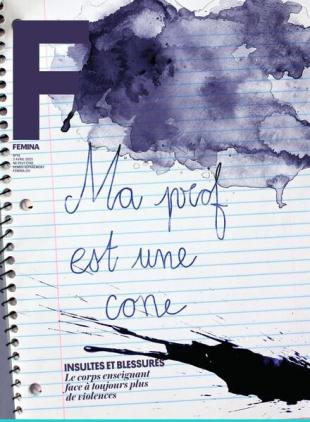 F
FEMINA
Ma prof
est une
cone
INSULTES ET BLESSURES
Le corps enseignant
face à toujours plus
de violences